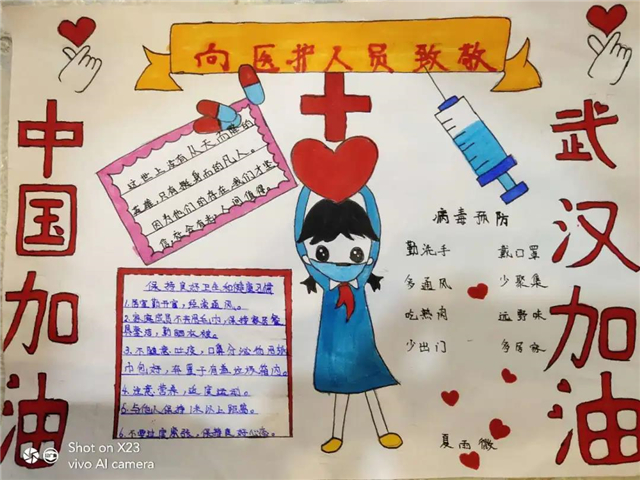 向医护人员致敬
中国加油
武汉加油
这世上没有从天而降的
英雄,只有挺身而的凡人。
因为他们的存在,我们才坚
信,
人间值得。
病毒预防
勤洗手 戴口罩
多通风 少聚集
吃熟肉 远野味
少出门 多
保持良好卫生和健康习惯
1.居室勤开窗,经常通风。
2.家庭成员不共用毛巾,保持家居餐
具整洁,勤晒衣被。
3.不随意吐痰,口鼻分泌物用纸
巾包好,弃置于有盖垃圾箱内。
4.注意营养,适度运动。
6.与他人保持1米以上距离。
6.不要过度紧张,保持良好心态。
夏雨微
Shot on X23
vivo AI camera